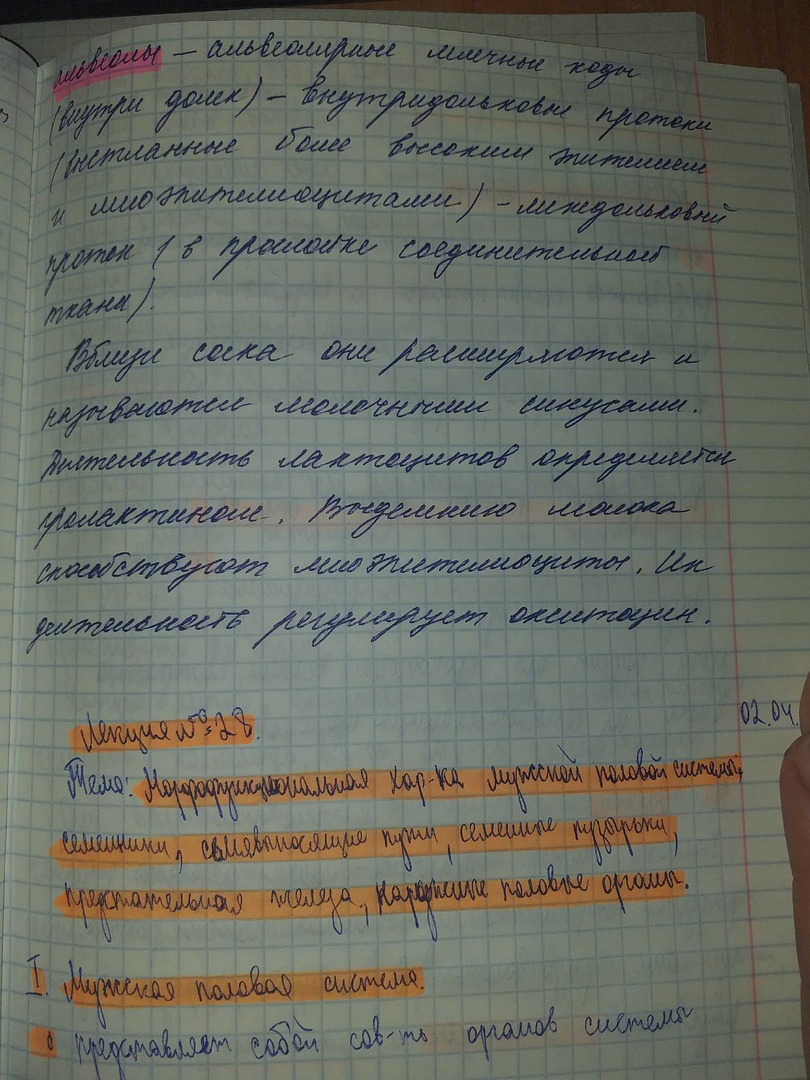 альвеолы — альвеолярные млечные ходы
(внутри долек) — внутридольковые протоки
(выстланные более высоким эпителием
и миоэпителиоцитами) - междольковый
проток (в прослойке соединительной
ткани).
Вблизи соска они расширяются и
называются молочными синусами.
Деятельность лактоцитов определяется
пролактином. Выделению молока
способствуют миоэпителиоциты. Их
деятельность регулирует окситоцин.
Лекция №28.
02.04.
Тема: Морфофункциональная хар-ка мужской половой системы,
семенники, семявыносящие пути, семенные пузырьки,
предстательная железа, наружные половые органы.
I. Мужская половая система.
представляет собой сов-ть органов системы